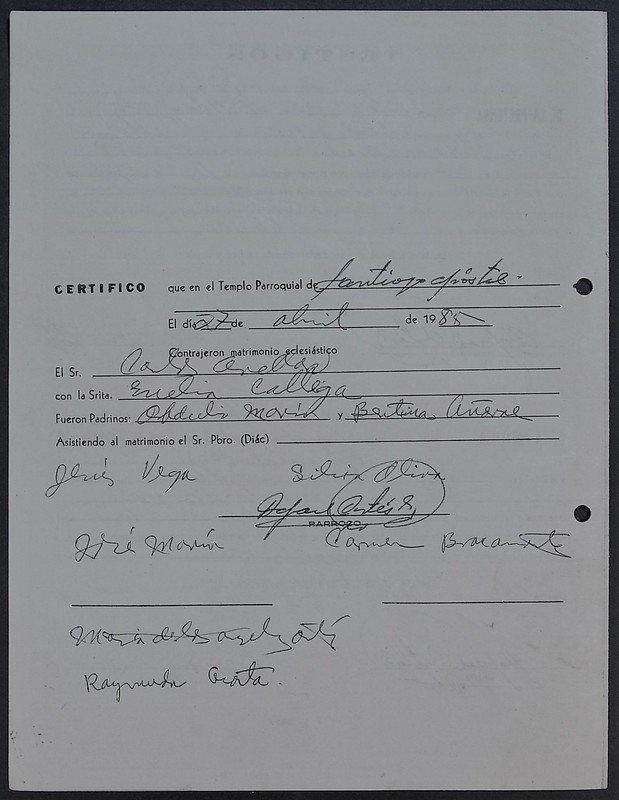 CERTIFICO que en el Templo Parroquial de Santiago Apóstol.
El día 27 de abril de 1985
Contrajeron matrimonio eclesiástico
El Sr. Carlos
con la Srita. Emelia Calleja
Fueron Padrinos: Obdulio Morín y Bertina
Asistiendo al matrimonio el Sr. Pbro. (Diác)
Jesús Vega Silvia Oliva
Rafael Cortés
PARROCO
José Morín Carmen Bracamonte
María de los
Raymunda